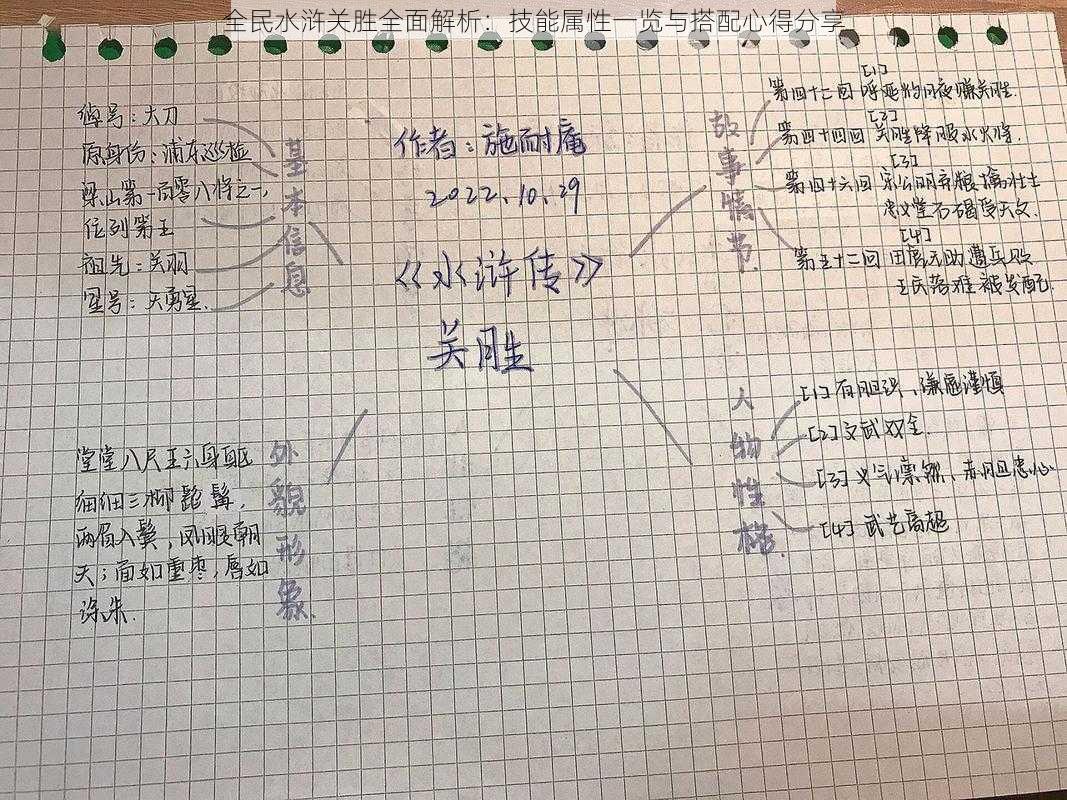 全民水浒关胜全面解析：技能属性一览与搭配心得分享
作者：施耐庵
2022.10.29
《水浒传》
关胜
基本信息
绰号：大刀
原身份：浦东巡检
梁山第一百零八将之一，
位列第五
祖先：关羽
星号：天勇星.
故事情节.
[1]
第四十二回 呼延灼月夜赚关胜.
[2]
第四十四回 关胜降服水火将.
[3]
第四十六回 宋公明弃粮擒壮士
忠义堂石碣受天文.
[4]
第五十二回 田虎无助遭兵败
王庆落难被发配.
外貌形象.
堂堂八尺五六身躯
细细三柳髭髯，
两眉入鬓，凤眼朝
天；面如重枣，唇如
涂朱.
人物性格.
[1]有胆识、谦虚谨慎
[2]文武双全.
[3]义气凛然、赤胆忠心
[4]武艺高超